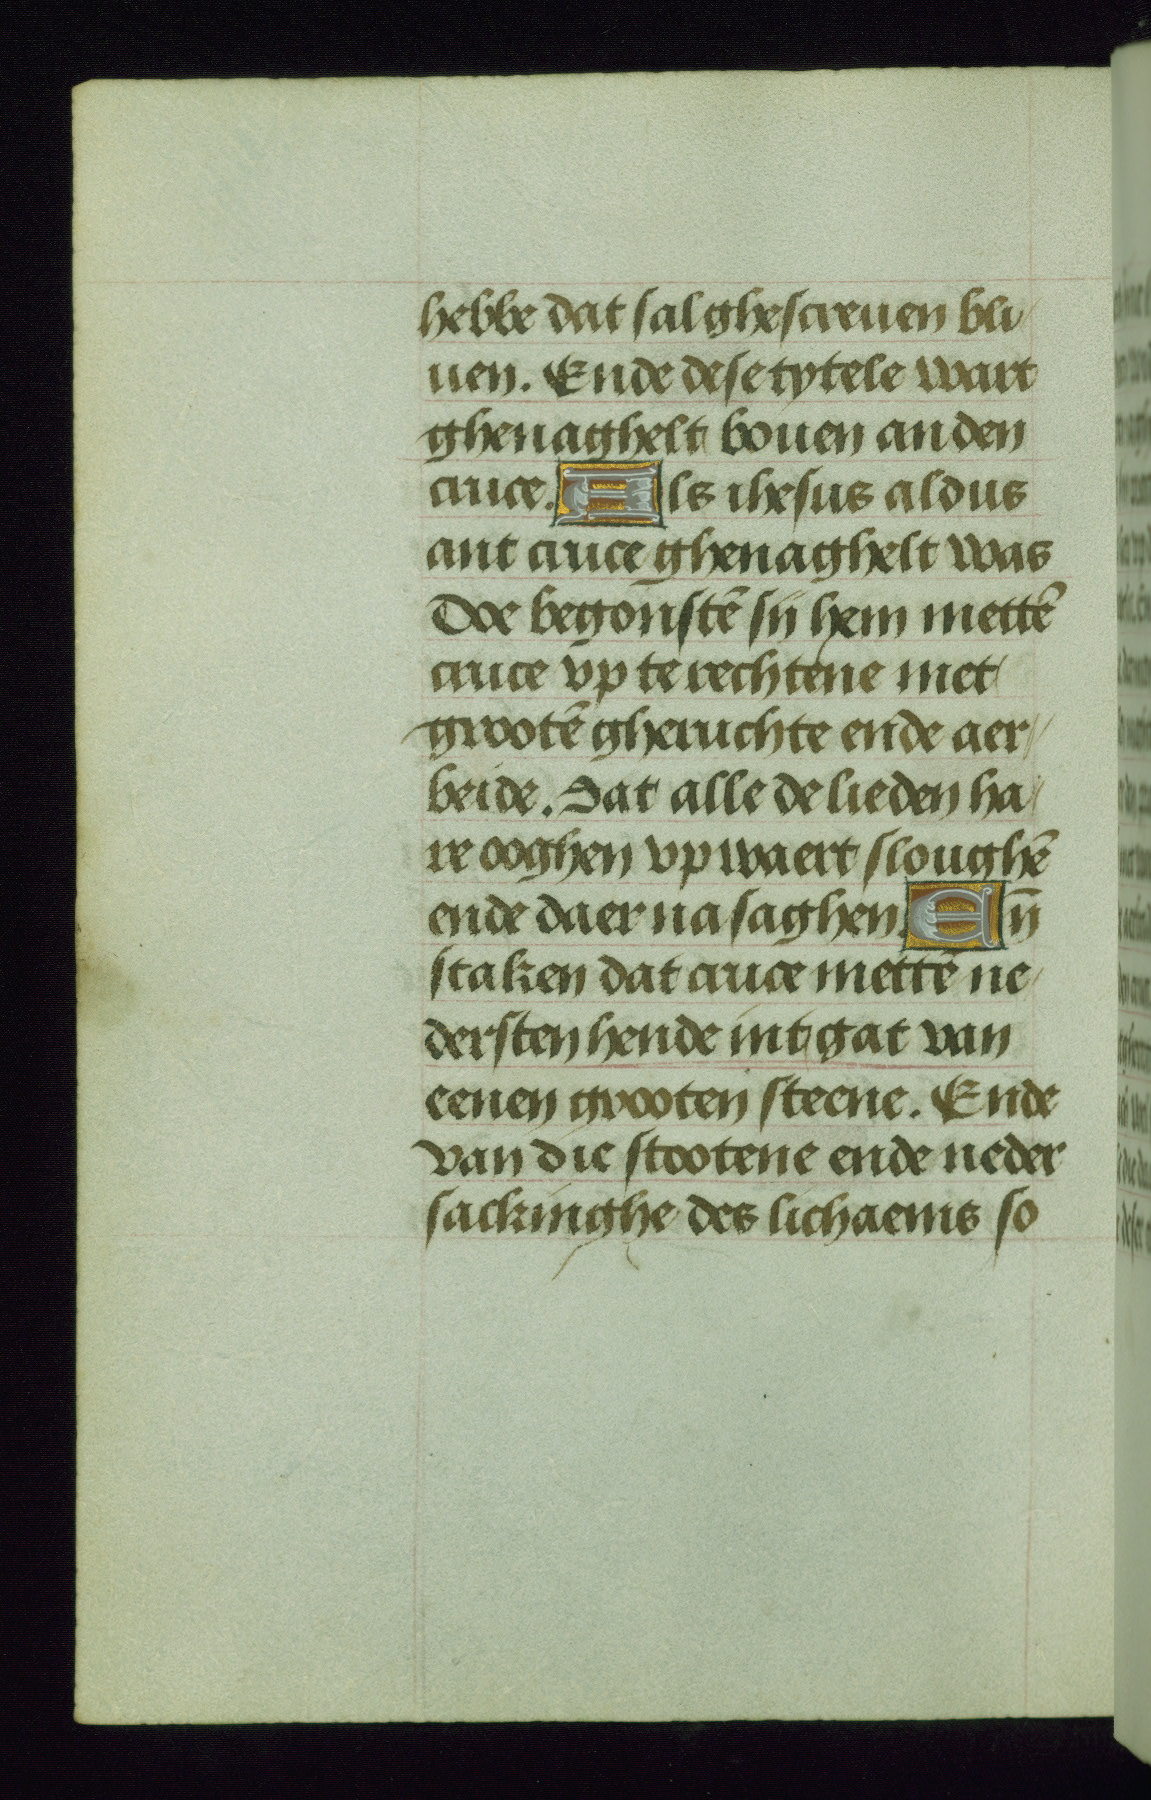 hebbe dat sal ghescreuen bli/
uen. Ende dese tytele wart
ghenaghelt bouen an den
cruce. Als ihesus aldus
ant cruce ghenaghelt was
Doe begonstē sij hem mettē
cruce vp te rechtene met
grootē gheruchte ende aer//
beide. Dat alle de lieden ha/
re ooghen vpwaert sloughē
ende daer na saghen. En̄
staken dat cruce mettē ne/
dersten hende int gat van
eenen grooten steene. Ende
van die stootene ende neder
sackinghe des lichaems so